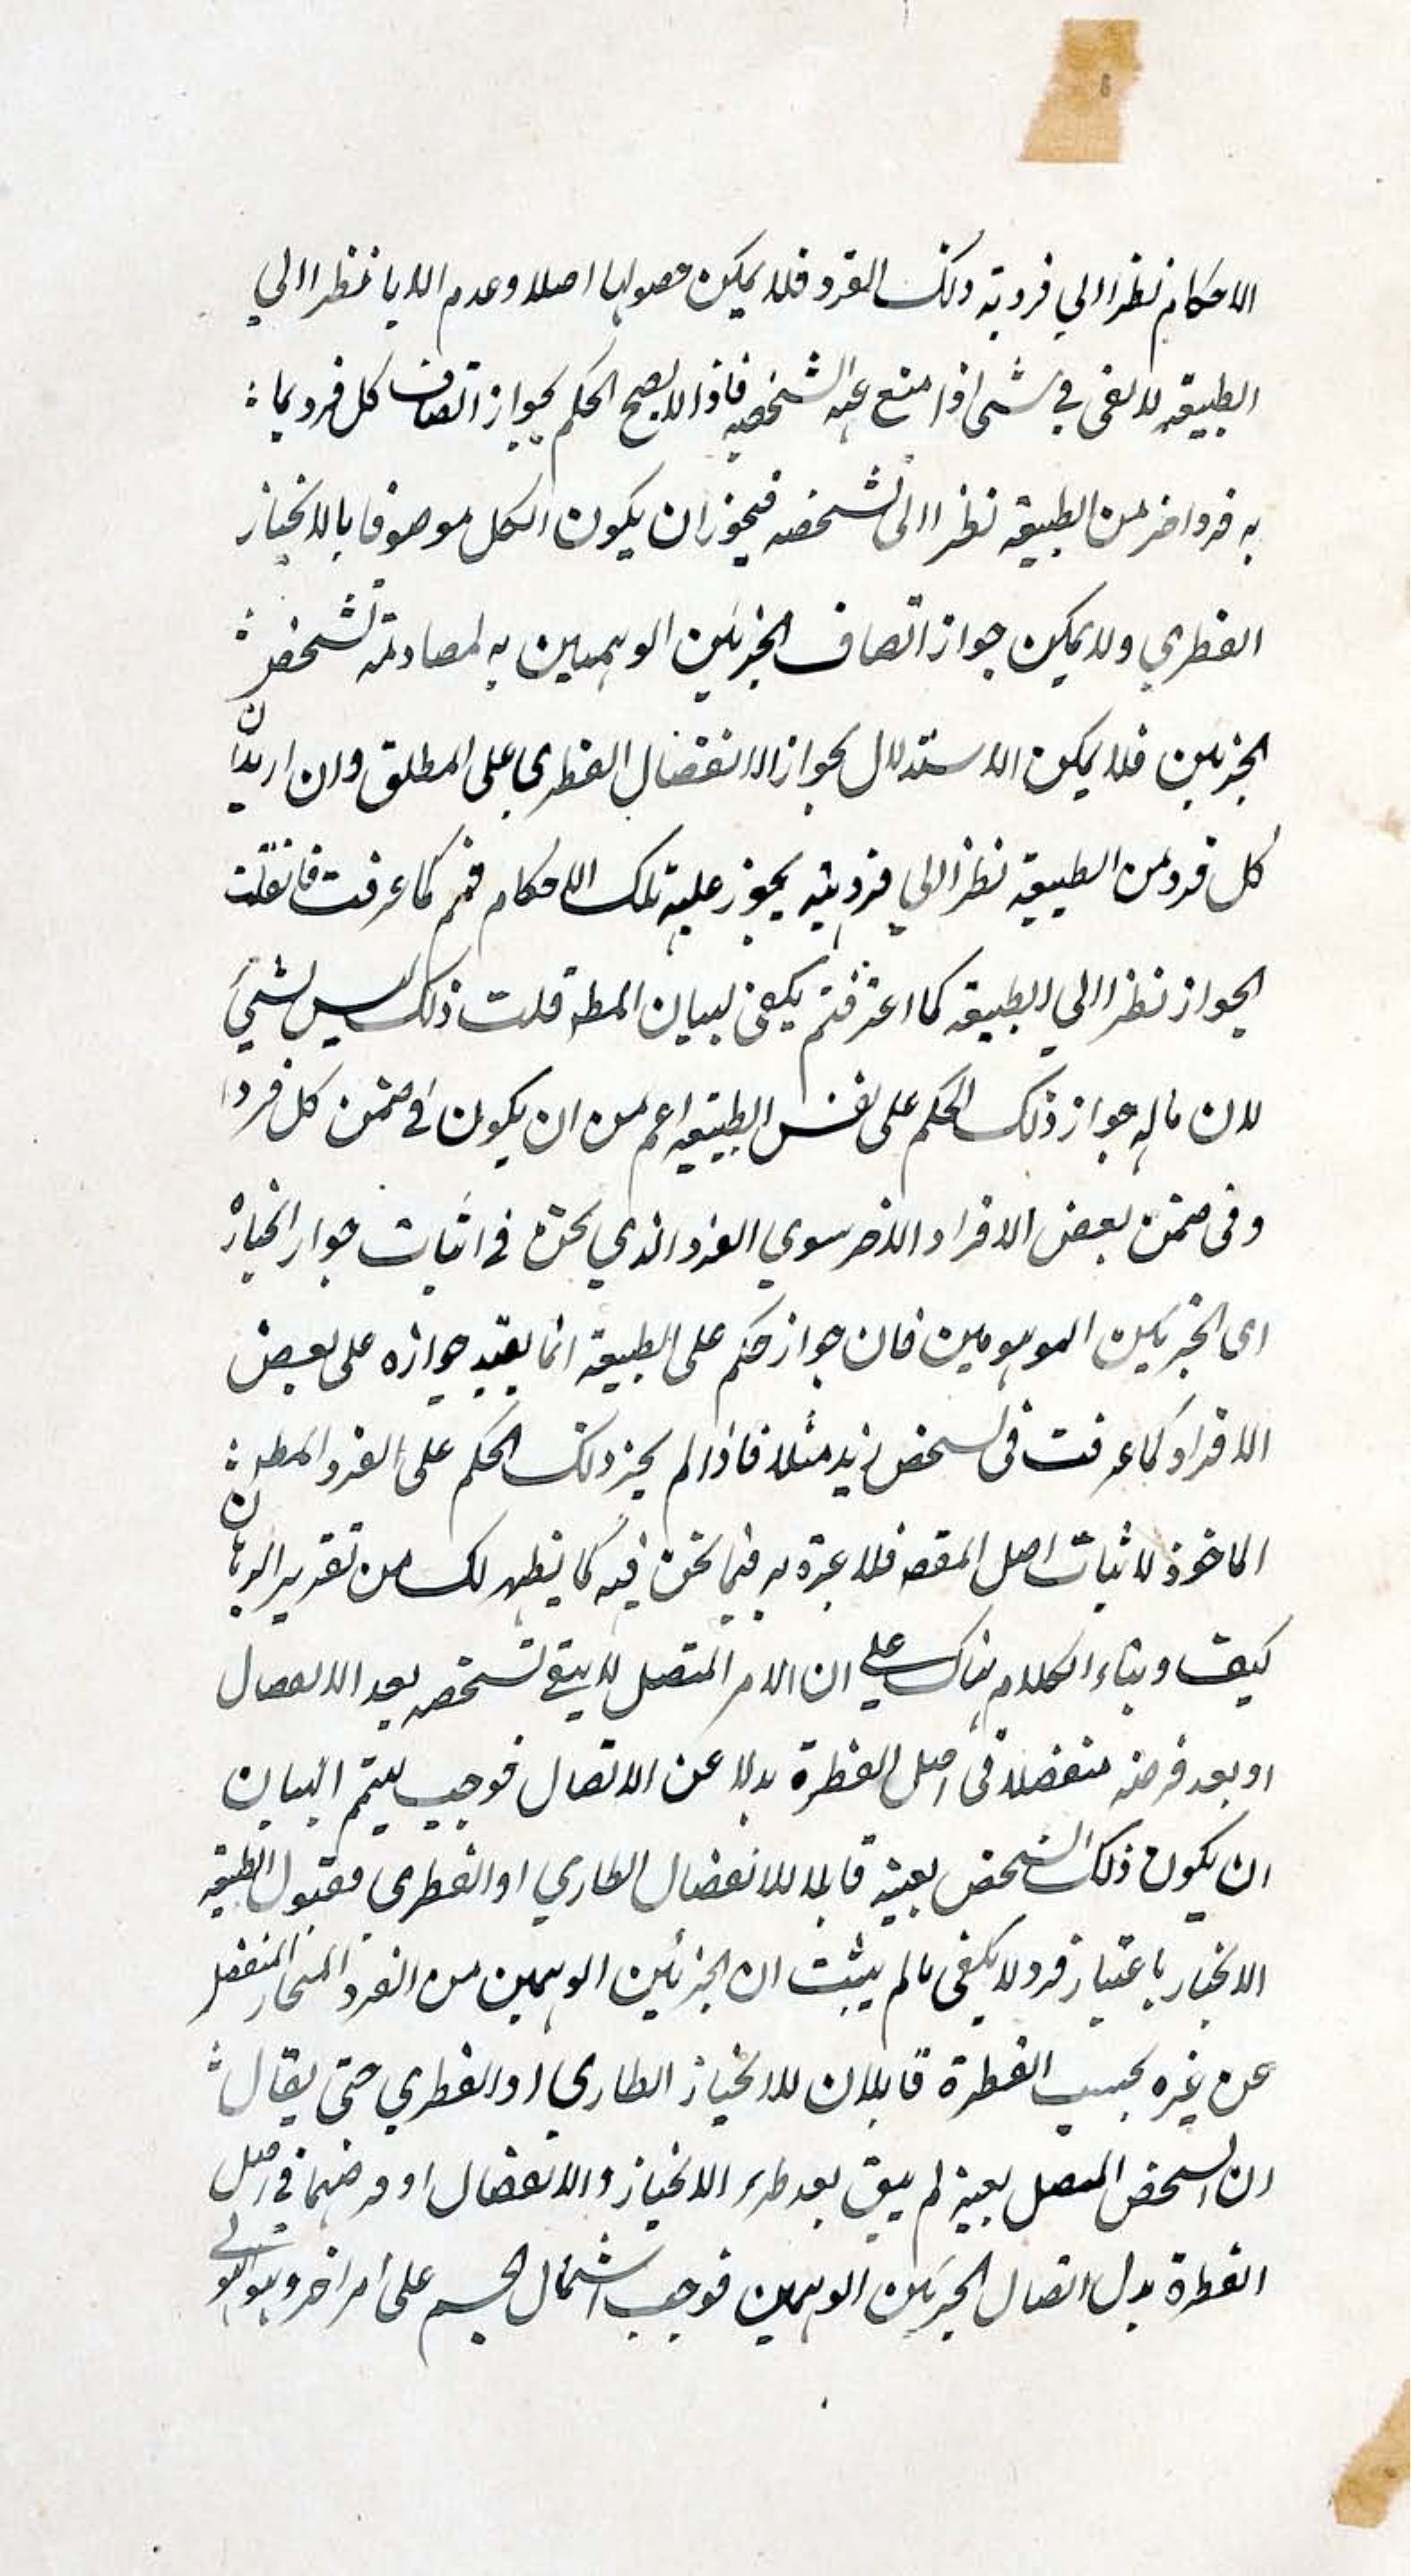 الاحكام نظرا الي فردية ذلك الفرد فلا يمكن حصولها اصلا وعدم الابا نظرا الي
الطبيعة لا يفى في شى اذا منع عنه الشخصية فاذا لا يصح الحكم بجواز اتصاف كل فرد بما
به فرد اخر من الطبيعة نظرا الى تشخصه فيجوز ان يكون الكل موصوفا بالانحياز
الفطري ولا يمكن جواز اتصاف الجزئين الوهميين به لمصادمة تشخص
الجزئين فلا يمكن الاستدلال بجواز الانفصال الفطري على المطلق وان اريد ان
كل فرد من الطبيعة نظرا الي فرديته يجوز عليه تلك الاحكام فمم كما عرفت فان قلت
الجواز نظرا الي الطبيعة كما اعترفتم يكفى لبيان المط قلت ذلك ليس بشيء
لان ماله جواز ذلك الحكم على نفس الطبيعة اعم من ان يكون في ضمن كل فرد ا
وفى ضمن بعض الافراد الاخر سوي الفرد الذي نحن في اثبات جواز انحيازه
اى الجزئين الموهومين فان جواز حكم على الطبيعة انما يفيد جوازه على بعض
الافراد كما عرفت فى تشخص زيد مثلا فاذا لم يجز ذلك الحكم على الفرد المط
الماخوذ لاثبات اصل المقصد فلا عبرة به فيما نحن فيه كما يظهر لك من تقرير البرهان
كيف وبناء الكلام هناك على ان الامر المتصل لا يبقى تشخصه بعد الانفصال
او بعد فرضه منفصلا فى اصل الفطرة بدلا عن الاتصال فوجب ليتم البيان
ان يكون ذلك الشخص بعينه قابلا للانفصال الطاري او الفطرى فقبول الطبيعة
الانحياز باعتبار فرد لا يكفى ما لم يثبت ان الجزئين الوهمين من الفرد المنحاز المنفصل
عن غيره بحسب الفطرة قابلان للانحياز الطاري او الفطري حتى يقال
ان الشخص المتصل بعينه لم يبق بعد طرء الانحياز والانفصال او فرضهما في اصل
الفطرة بدل اتصال الجزئين الوهمين فوجب اشتمال الجسم على امر اخر وهو الهيولى